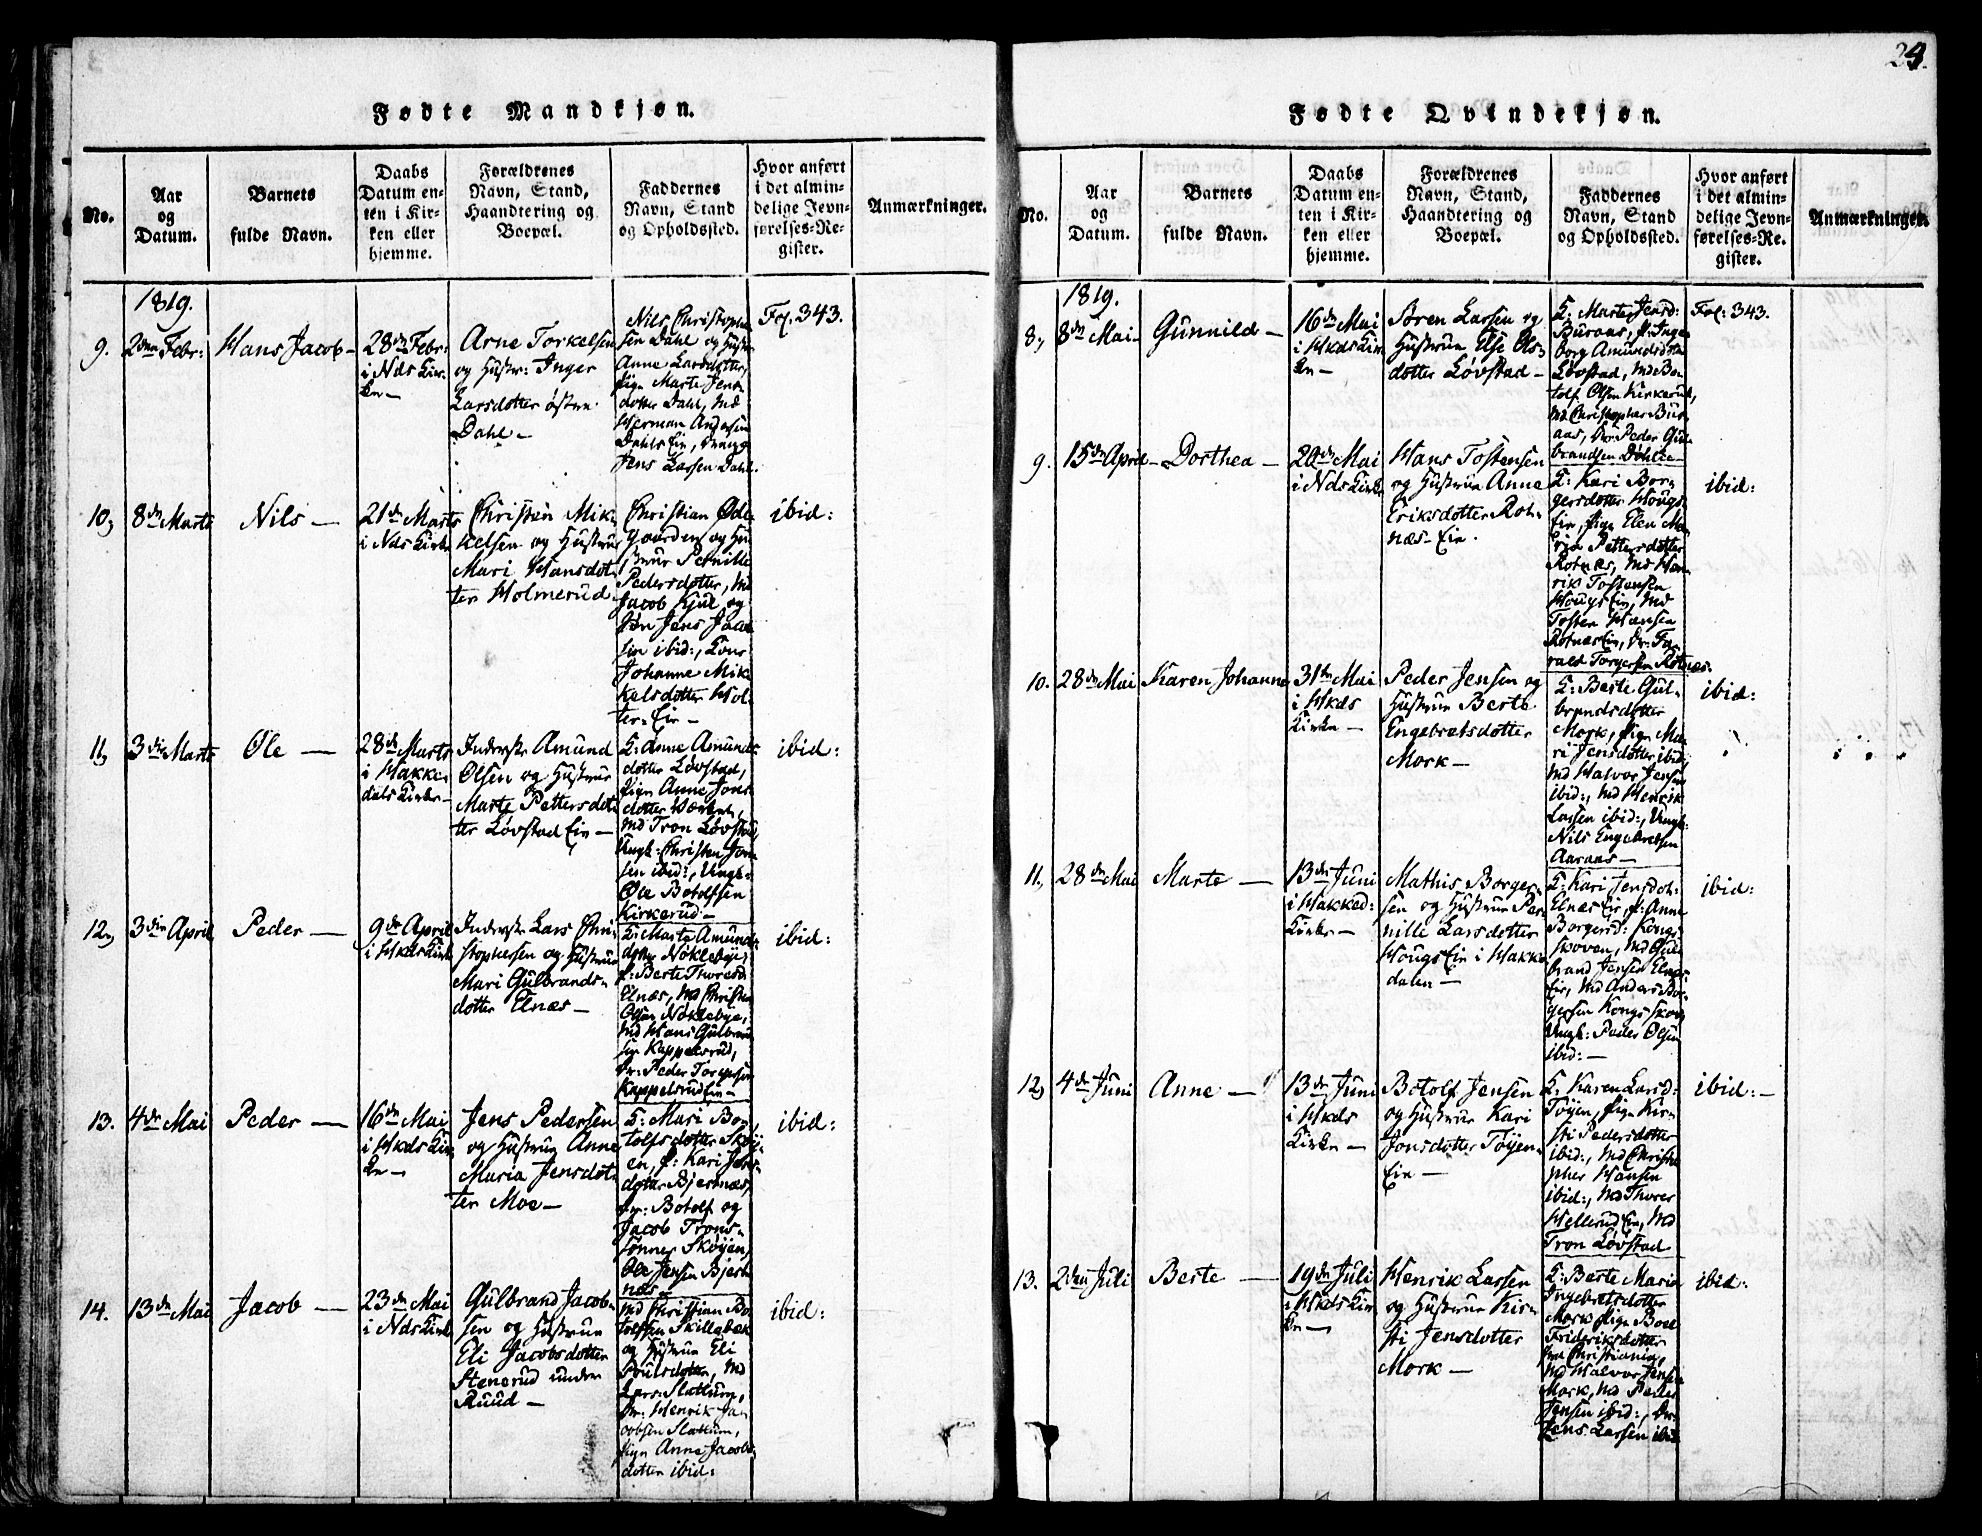 24.
Fødte Mandkjøn.
No.
Aar
og
Datum.
Barnets
fulde Navn.
Daabs
Datum en-
ten i Kir-
ken eller
hjemme.
Forældrenes
Navn, Stand,
Haandtering og
Boepæl.
Faddernes
Navn, Stand
og Opholdssted.
Hvor anført
i det almin-
delige Jevn-
førelses-Re-
gister.
Anmærkninger.
1819.
9.
2den Febr:
Hans Jacob
28de Febr:
i Nds Kir-
ken
Arne Torkelsen
og Hustr: Inger
Larsdotter østre
Dahl
Nils Christophe
sen Dahl og Hustr
Anne Larsdotter,
Pigen Marte Jens
dotter Dahl, Md
Herman Andersen
Dahls Eie, Dreng
Jens Larsen Dahl.
Fol. 343.
10,
8de Marts
Nils
21de Marts
i Nds Kirke
Christen Mik-
kelsen og Hustrue
Mari Hansdot
ter Holmerud
Christian Øde
gaarden og Hu
strue Pernille
Pedersdotter, Md
Jacob Kjul og
Søn Jens Jacob
sen ibid:, Kone
Johanne Mik
kelsdotter Hol
ter-Eie
ibid:
11,
3die Marts
Ole
28de Marts
i Hakke
dals Kirke
Inderste Amund
Olsen og Hustrue
Marte Pettersdot
ter Løvstad Eie
K: Anne Amunds
dotter Løvstad,
Pigen Anne Jons
dotter Værket,
Md Tron Løvstad,
Ungk: Christen Jon
sen ibid:, Ungk:
Ole Botolfsen
Kirkerud
ibid:
12,
3die April
Peder
9de April
i Hkds Kirke
Inderste Lars Chri
stophersen og Hustrue
Mari Gulbrands-
dotter Elnæs
K: Marte Amunds
dotter Nøklebye,
P: Berte Thoresd
Elnæs, Md Christen
Olsen Nøklebye,
Md Hans Gulbrand
sen Kappelsrud,
Dr: Peder Torgersen
Kappelsrud Eie
ibid:
13.
4de Mai
Peder
16de Mai
i Hkds Kir
ke
Jens Pedersen
og Hustrue Anne
Maria Jensdot
ter Moe
K: Mari Bo
tolfsdotter Skøy
en, P: Kari Jens
dotter Bjertnæs,
Dr: Botolf og
Jacob Trons-
sønner Skøyen,
Ole Jensen Bjert
næs
ibid:
14.
13de Mai
Jacob
23de Mai
i Nds Kirke
Gulbrand Jacob
sen og Hustrue
Eli Jacobsdotter
Stenerud under
Ruud
Md Christian Bo
tolfsen Skillebæk
og Hustrue Eli
Poulsdotter, Md
Lars Slattum,
Dr: Henrik Ja
cobsen Slattum,
Pigen Anne Jacobs
dotter ibid:
ibid:
Fødte Qvindekjøn.
No.
Aar
og
Datum.
Barnets
fulde Navn.
Daabs
Datum en-
ten i Kir-
ken eller
hjemme.
Forældrenes
Navn, Stand,
Haandtering og
Boepæl.
Faddernes
Navn, Stand
og Opholdssted.
Hvor anført
i det almin-
delige Jevn-
førelses-Re-
gister.
Anmærkninger.
1819.
8,
8de Mai
Gunnild
16de Mai
i Hkds Kir
ke
Søren Larsen og
Hustrue Else Ols-
dotter Løvstad
K: Marte Jensd:
Buraas, P: Inge
borg Amundsdtr
Løvstad, Md Bo
tolf Olsen Kirkerud,
Md Christopher Bur
aas, Dr: Peder Gul
brandsen Døhlie
Fol: 343.
9.
15de April
Dorthea
20de Mai
i Nds Kirke
Hans Tostensen
og Hustrue Anne
Eriksdotter Rot-
næs-Eie.
K: Kari Bor-
gersdotter Hougs
Eie, Pigen Elen Ma
ria Pettersdotter
Rotnæs, Md Hen
rik Tostensen
Hougs Eie, Md
Tosten Hansen
Rotnæs Eie, Dr:
Torgersen Rotnæs
ibid:
10.
28de Mai
Karen Johanne
31te Mai
i Hkds
Kirke
Peder Jensen og
Hustrue Berte
Engebretsdotter
Mork
K: Berte Gul-
brandsdotter
Mork, Pigen Ma
ri Jensdotter ibid:
Md Halvor Jensen
ibid:, Md Henrik
Larsen ibid:, Ungk:
Nils Engebretsen
Aaraas
ibid:
11,
28de Mai
Marte
13de Juni
i Hakked:
Kirke
Mathis Borger-
sen og Hustrue Per
nille Larsdotter
Hougs Eie i Hakke
dalen
K: Kari Jensdot:
Elnæs Eie, P: Anne
Borgersd: Kongs
skoven, Md Gul
brand Jensen Elnæs
Eie, Md Anders Bor
gersen Kongsskov
Ungk: Peder Olsen
ibid:
ibid:
12,
4de Juni
Anne
13de Juni
i Hkds
Kirke
Botolf Jensen
og Hustrue Kari
Jonsdotter Tøyen-
Eie
K: Karen Larsd:
Tøyen, Pigen Kir-
sti Pedersdotter
ibid:, Md Christo
pher Hansen
ibid:, Md Thorer
Hellerud Eie, Md
Tron Løvstad
ibid:
13.
2den Juli
Berte
19de Juli
i Hkds Kir
ke
Henrik Larsen
og Hustrue Kir-
sti Jensdotter
Mork
K: Berte Maria
Ingebretsdotter
Mork, Pigen Boel
Frideriksdotter
fra Christiania,
Md Halvor Jensen
Mork, Md Peder
Jensen ibid:, Dr:
Jens Larsen ibid
ibid: